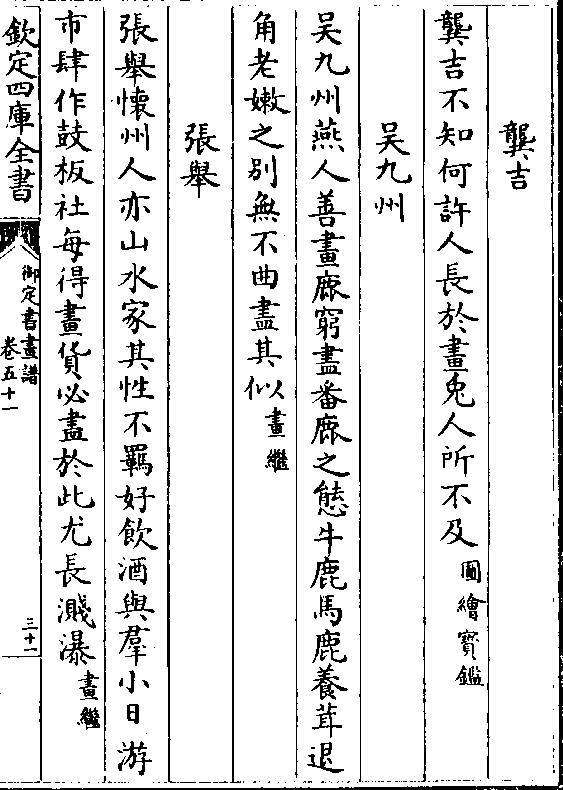 龔吉
龔吉不知何許人長於畫兎人所不及圖繪寳鑑
吴九州
吴九州燕人善畫鹿窮盡番鹿之態牛鹿馬鹿養茸退
角老嫩之别無不曲盡其似畫繼
張舉
張舉懷州人亦山水家其性不羈好飲酒與羣小日游
市肆作鼓板社每得畫貨必盡於此尤長濺瀑畫繼
欽定四庫全書
御定書畫譜
卷五十一
三十一